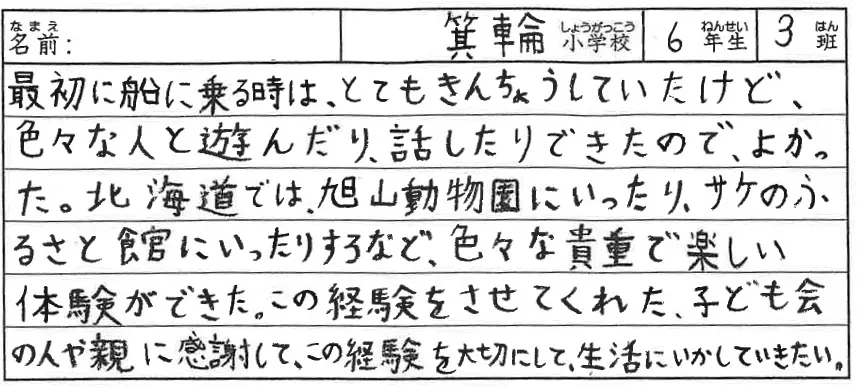 名前: 箕輪 小学校 6 年生 3 班
最初に船に乗る時は、とてもきんちょうしていたけど、
色々な人と遊んだり、話したりできたので、よかっ
た。北海道では、旭山動物園にいったり、サケのふ
るさと館にいったりするなど、色々な貴重で楽しい
体験ができた。この経験をさせてくれた、子ども会
の人や親に感謝して、この経験を大切にして、生活にいかしていきたい。